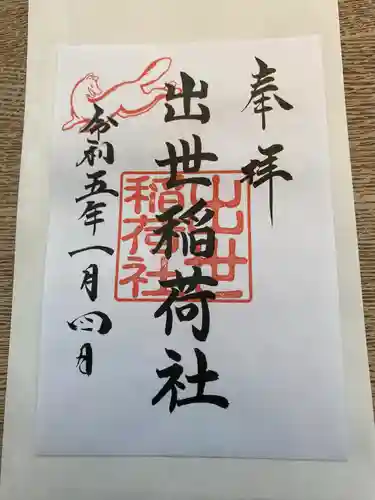 奉拝
出世稲荷社
出世
稲荷社
令和五年一月四月